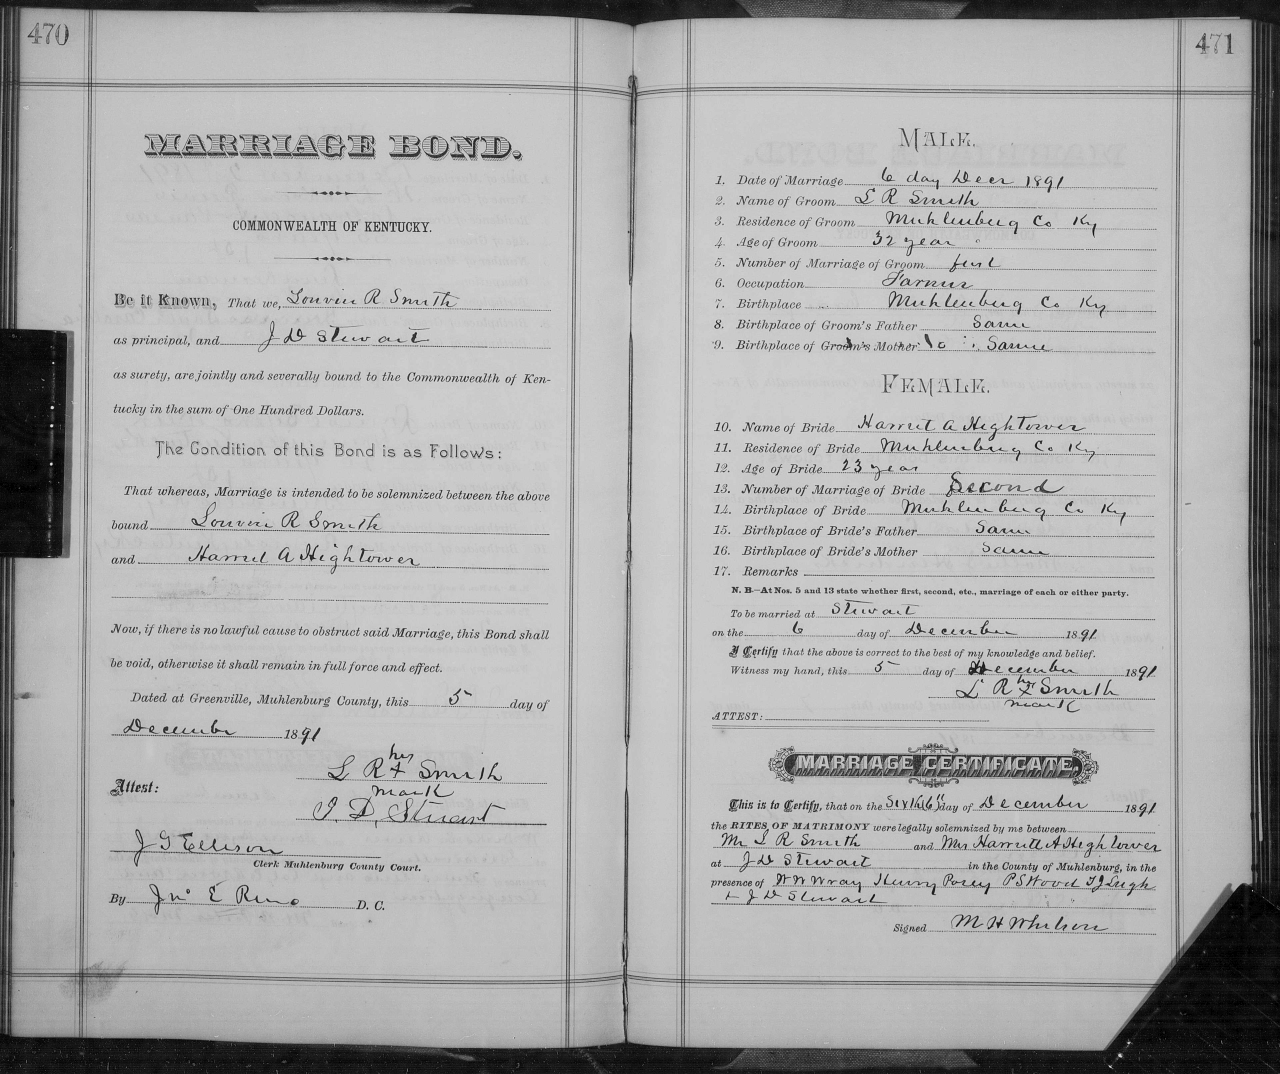 470
MARRIAGE BOND.
COMMONWEALTH OF KENTUCKY.
Be it Known, That we, Louvin R Smith
as principal, and J D Stewart
as surety, are jointly and severally bound to the Commonwealth of Ken-
tucky in the sum of One Hundred Dollars.
The Condition of this Bond is as Follows:
That whereas, Marriage is intended to be solemnized between the above
bound Louvin R Smith
and Harriet A Hightower
Now, if there is no lawful cause to obstruct said Marriage, this Bond shall
be void, otherwise it shall remain in full force and effect.
Dated at Greenville, Muhlenburg County, this 5 day of
December 1891
his
L R X Smith
mark
Attest:
J. D. Stuart
J G Ellison
Clerk Muhlenburg County Court.
By Jno E Reno D. C.
471
MALE.
1. Date of Marriage 6 day Decr 1891
2. Name of Groom L R Smith
3. Residence of Groom Muhlenburg Co Ky
4. Age of Groom 32 year
5. Number of Marriage of Groom first
6. Occupation Farmer
7. Birthplace Muhlenburg Co Ky
8. Birthplace of Groom's Father Same
9. Birthplace of Groom's Mother Same
FEMALE.
10. Name of Bride Harriet A Hightower
11. Residence of Bride Muhlenburg Co Ky
12. Age of Bride 23 year
13. Number of Marriage of Bride Second
14. Birthplace of Bride Muhlenburg Co Ky
15. Birthplace of Bride's Father Same
16. Birthplace of Bride's Mother Same
17. Remarks
N. B.—At Nos. 5 and 13 state whether first, second, etc., marriage of each or either party.
To be married at Stewart
on the 6 day of December 1891
I Certify that the above is correct to the best of my knowledge and belief.
Witness my hand, this 5 day of December 1891
his
L R X Smith
mark
ATTEST:
MARRIAGE CERTIFICATE.
This is to Certify, that on the Sixth (6") day of December 1891
the RITES OF MATRIMONY were legally solemnized by me between
Mr L R Smith and Mrs Harriett A Hightower
at J D Stewart in the County of Muhlenburg, in the
presence of W W Wray Henry Posey P S Wood
+ J D Stewart
Signed M H Whitson